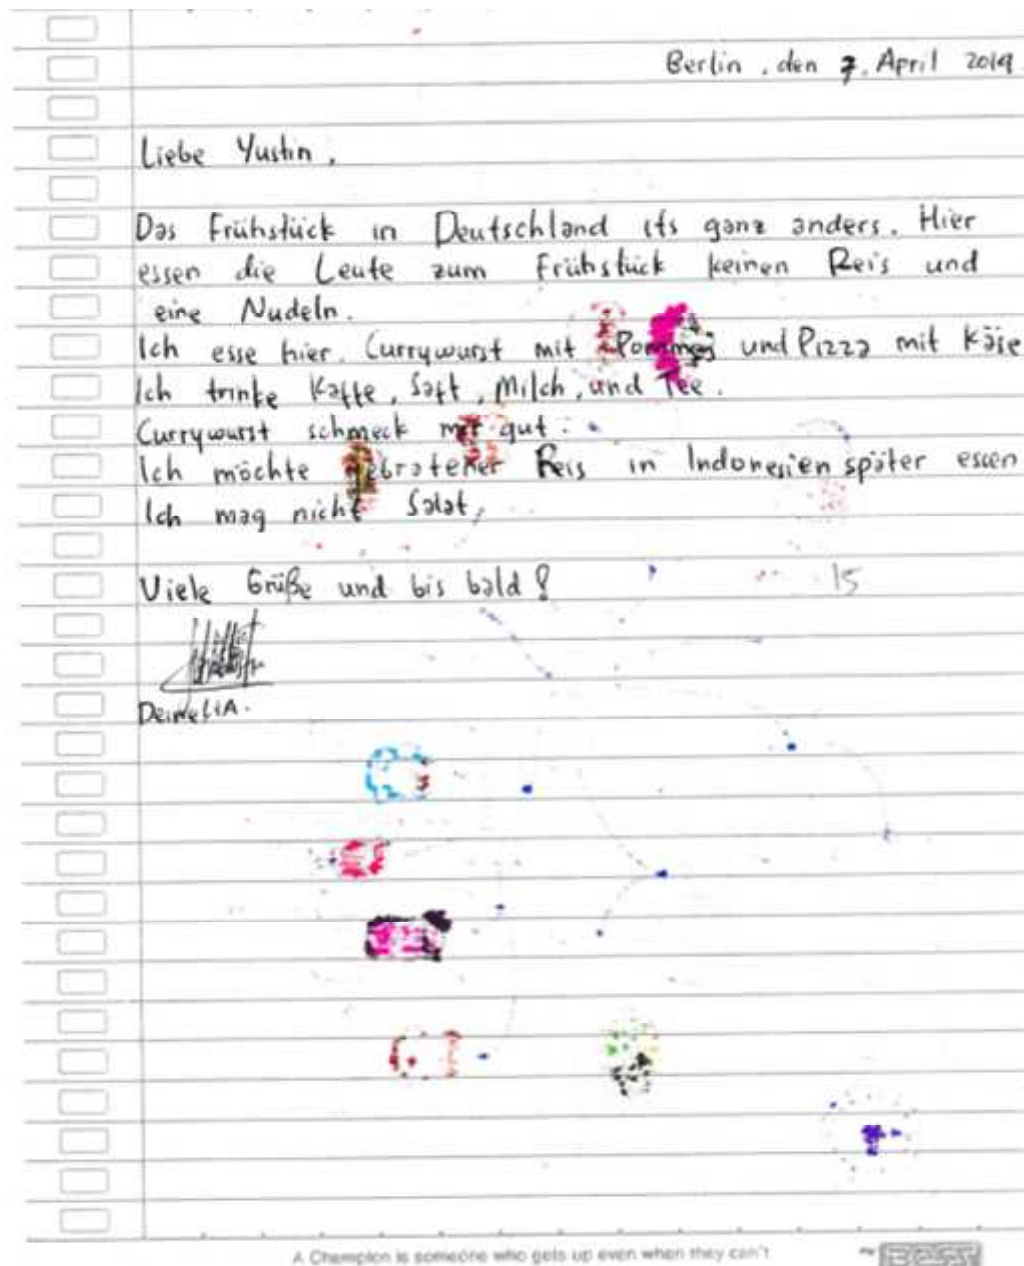 Berlin, den 7. April 2019
Liebe Yustin,
Das Frühstück in Deutschland its ganz anders. Hier
essen die Leute zum Frühstück keinen Reis und
eine Nudeln.
Ich esse hier. Currywurst mit Pommes und Pizza mit Käse
Ich trinke Kaffe, Saft, Milch, und Tee.
Currywurst schmeck mir gut.
Ich möchte gebratener Reis in Indonesien später essen
Ich mag nicht Salat,
Viele Grüße und bis bald!
15
A Champion is someone who gets up even when they can't